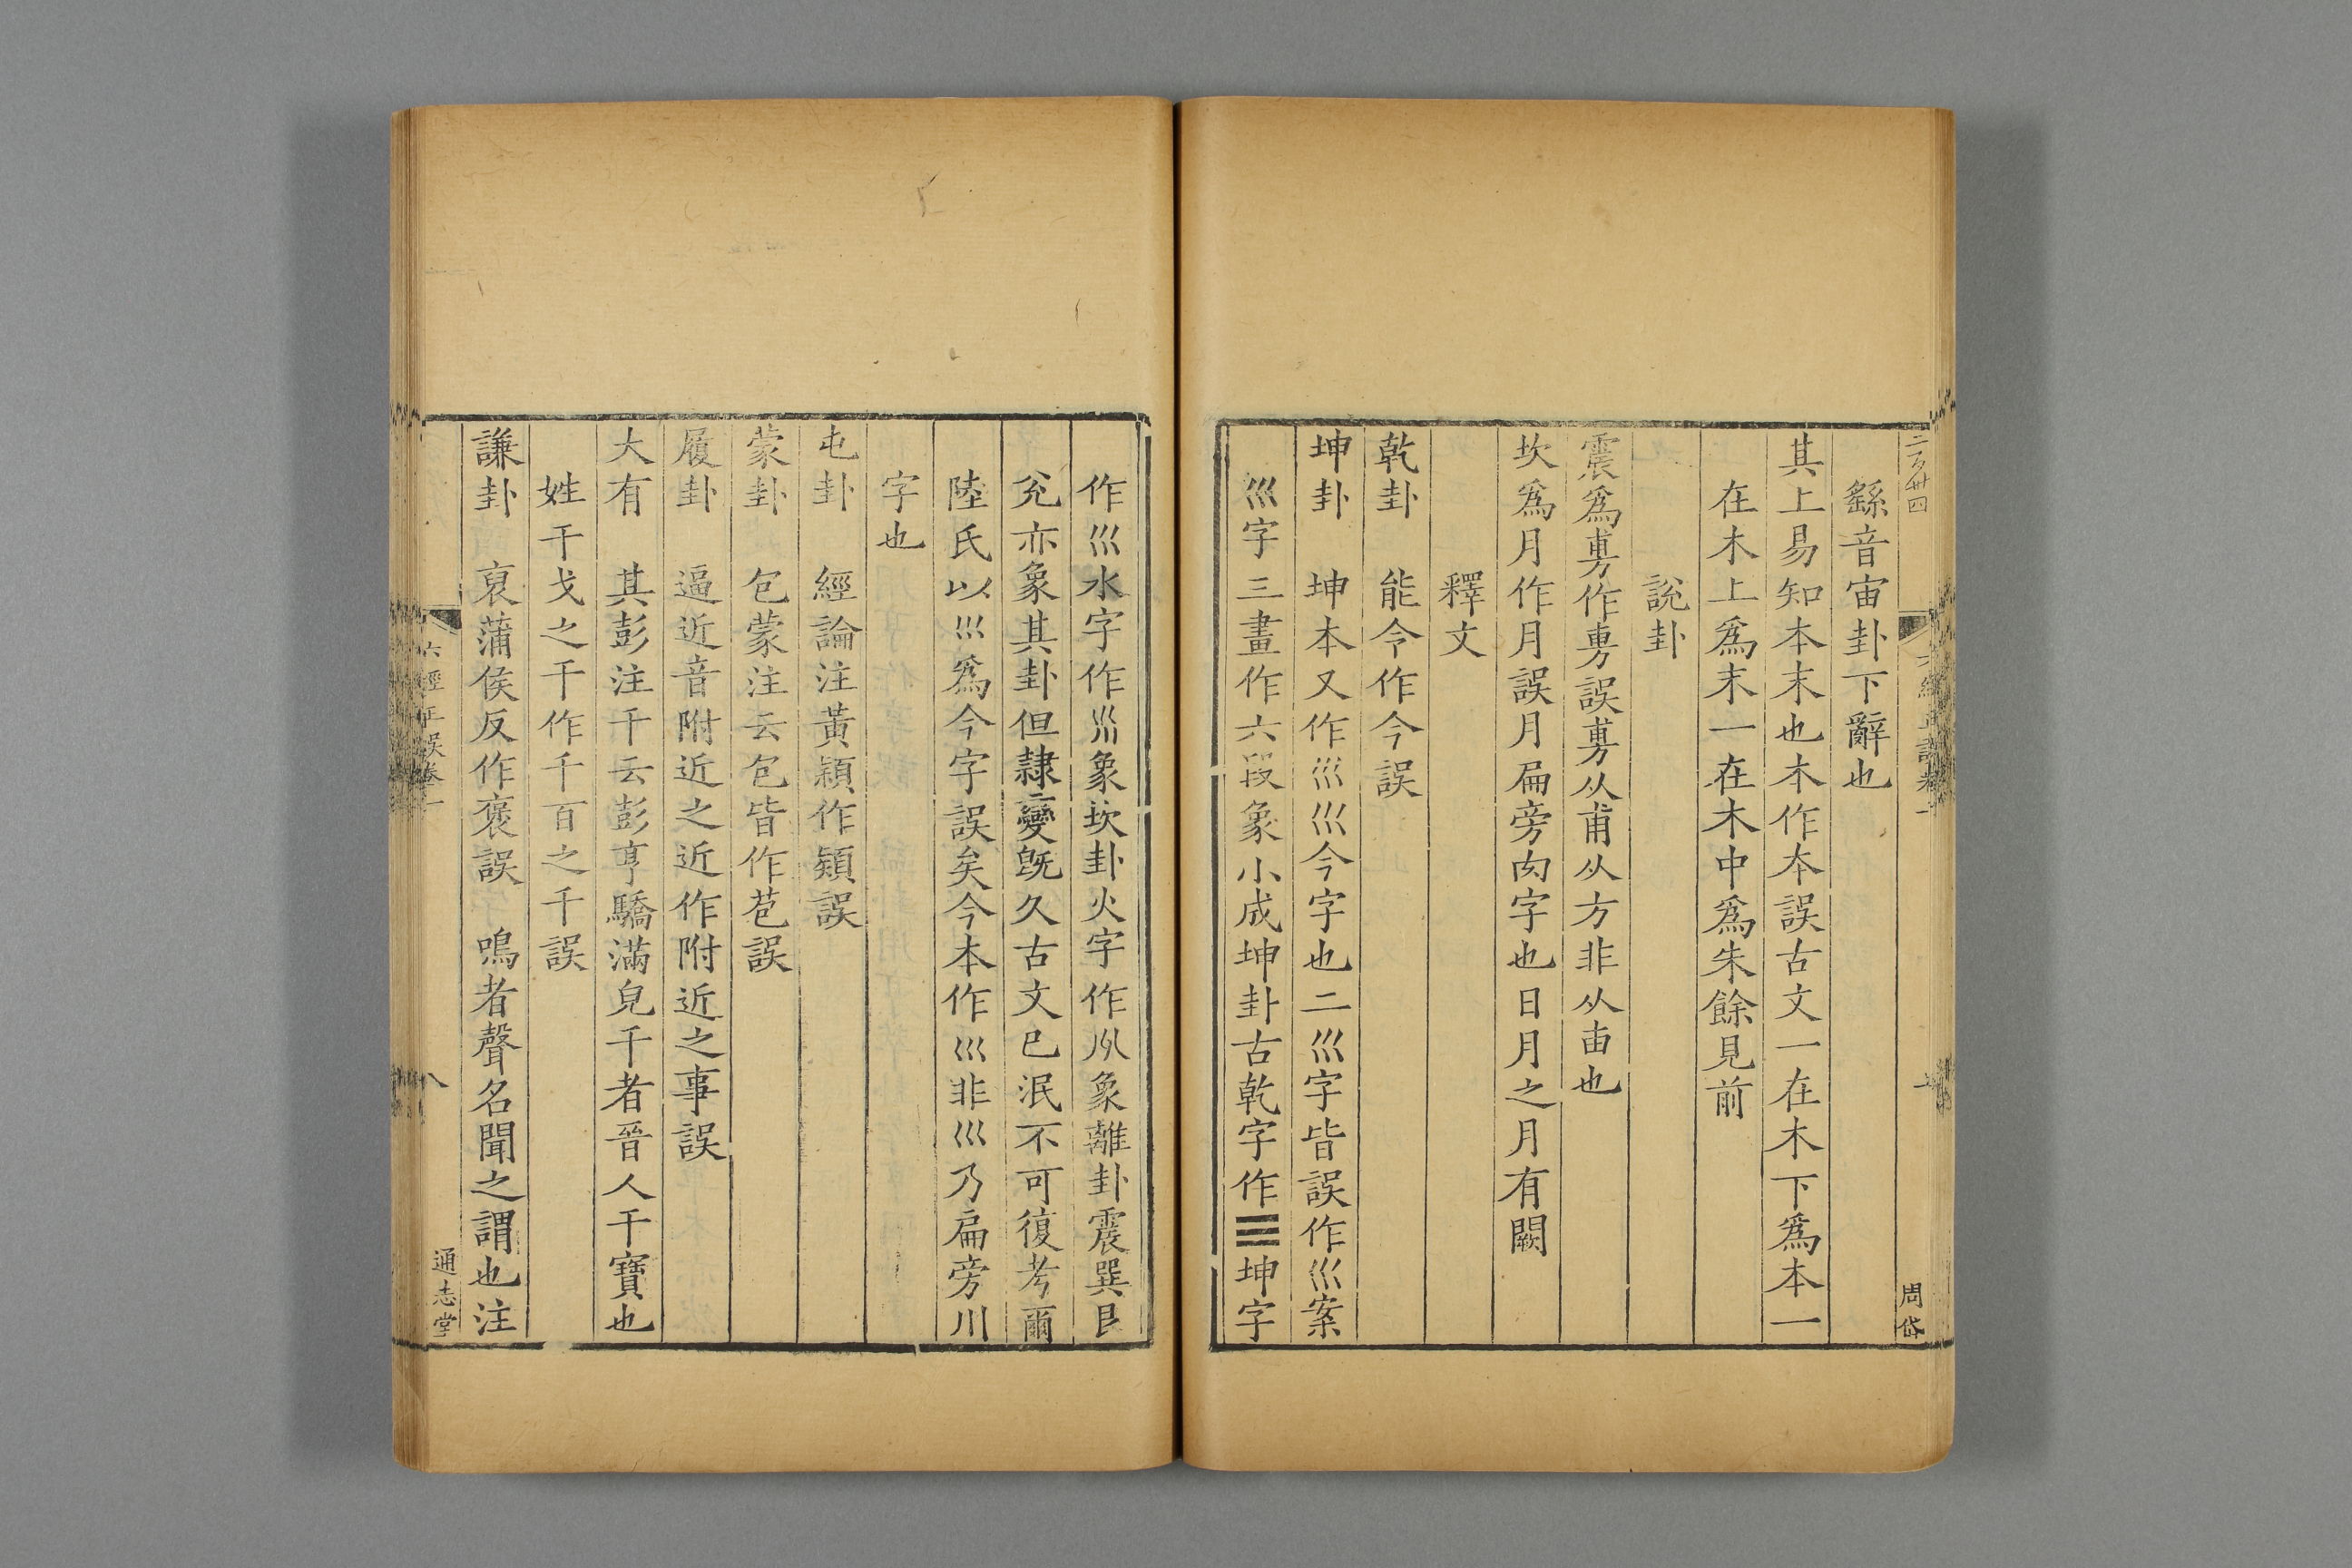 二百卅四
六經正誤卷一
七
周岱
繇音宙卦下辭也
其上易知本末也本作夲誤古文一在木下爲本一
在木上爲末一在木中爲朱餘見前
說卦
震爲旉作旉誤旉从甫从方非从由也
坎爲月作月誤月扁旁肉字也日月之月有闕
釋文
乾卦 能令作今誤
坤卦 坤本又作巛巛今字也二巛字皆誤作巛案
巛字三畫作六段象小成坤卦古乾字作☰坤字
作巛水字作巛象坎卦火字作火象離卦震巽艮
兊亦象其卦但隷變旣久古文已泯不可復考爾
陸氏以巛爲今字誤矣今本作巛非巛乃扁旁川
字也
屯卦 經論注黃穎作頴誤
蒙卦 包蒙注云包皆作苞誤
履卦 逼近音附近之近作附近之事誤
大有 其彭注干云彭亨驕滿皃干者晉人干寶也
姓干戈之干作千百之千誤
謙卦 裒蒲侯反作褒誤 鳴者聲名聞之謂也注
六經正誤卷一
八
通志堂